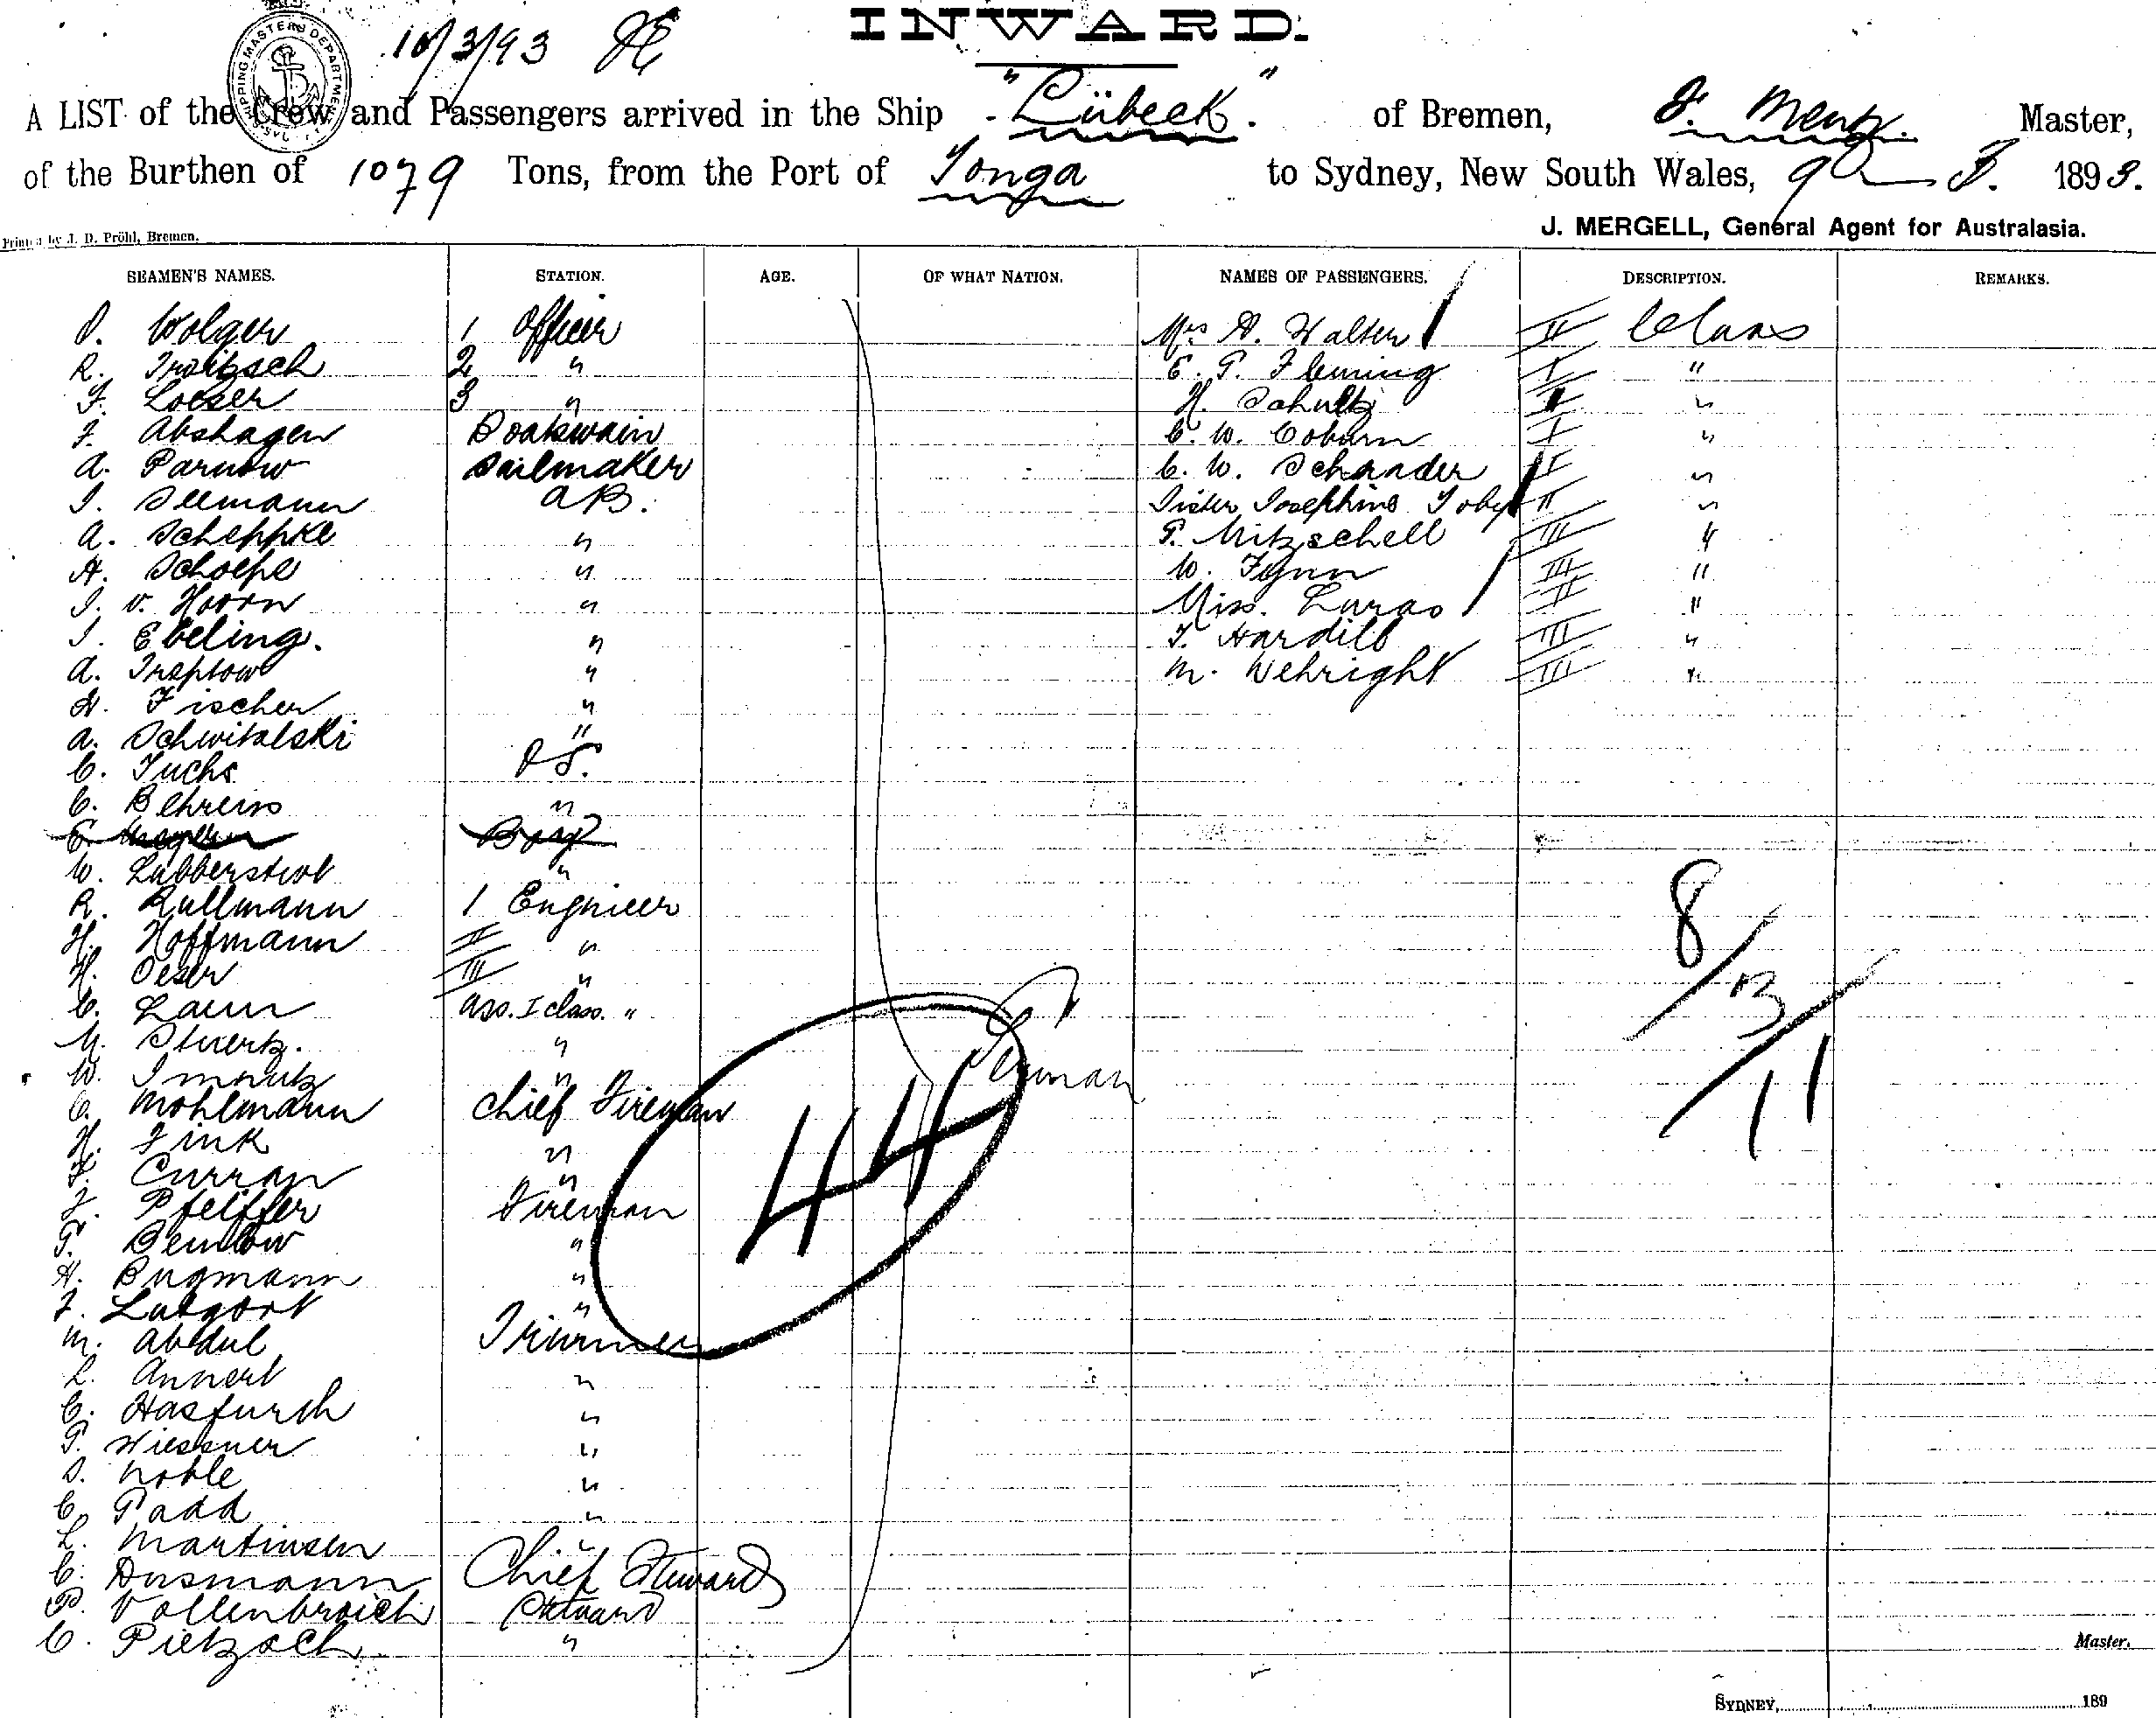 INWARD.
SHIPPING MASTERS DEPARTMENT
10/3/93
A LIST of the Crew and Passengers arrived in the Ship "Lübeck" of Bremen, F. Mentz Master,
of the Burthen of 1079 Tons, from the Port of Tonga to Sydney, New South Wales, 9th 3. 1893.
J. MERGELL, General Agent for Australasia.
Printed by J. D. Pröhl, Bremen.
SEAMEN'S NAMES. STATION. AGE. OF WHAT NATION. NAMES OF PASSENGERS. DESCRIPTION. REMARKS.
O. Wolger 1 Officer Mrs A. Walter II Class
R. Troitzsch 2 " E. P. Fleming I "
F. Loeser 3 " H. Schultz "
J. Abshagen Boatswain C. W. Coburn I "
A. Parnow Sailmaker C. W. Schrader "
J. Seemann AB. Sister Josephine II "
A. Scheppke " P. Mitzschell III "
A. Schoepe " W. Fynn III "
J. v. Hoorn " Miss. Lucas II "
J. Ebeling. " T. Hardill III "
A. Treptow " M. Wehright III "
H. Fischer "
A. Schwitalski "
C. Fuchs OS.
C. Behrens "
E. Boy
W. Lübberstedt "
R. Rullmann 1 Engineer
H. Hoffmann II "
H. Oeser III "
C. Laun Ass. I class. "
M. Stuertz. "
W. "
C. Mohlmann Chief Fireman
H. Fink "
F. Curran "
J. Pfeiffer Fireman
P. Bemlow "
H. Brugmann "
J. Lutgort "
M. Abdul Trimmer
L. Annert "
C. Hasfurth "
P. Wiessner "
O. Noble "
C. Paad "
L. Martinsen "
C. Dusmann Chief Steward
P. Vollenbroich Steward
C. Pietzsch "
German
44
8/3/11
Master.
SYDNEY, 189